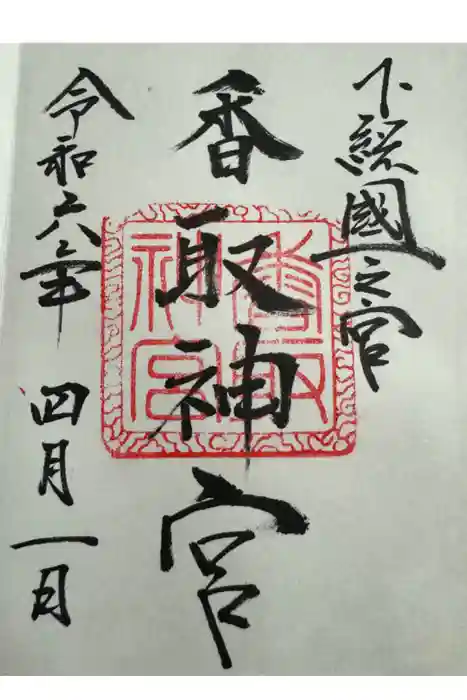 下総國一之宮
香取神宮
香取神宮
令和六年 四月一日